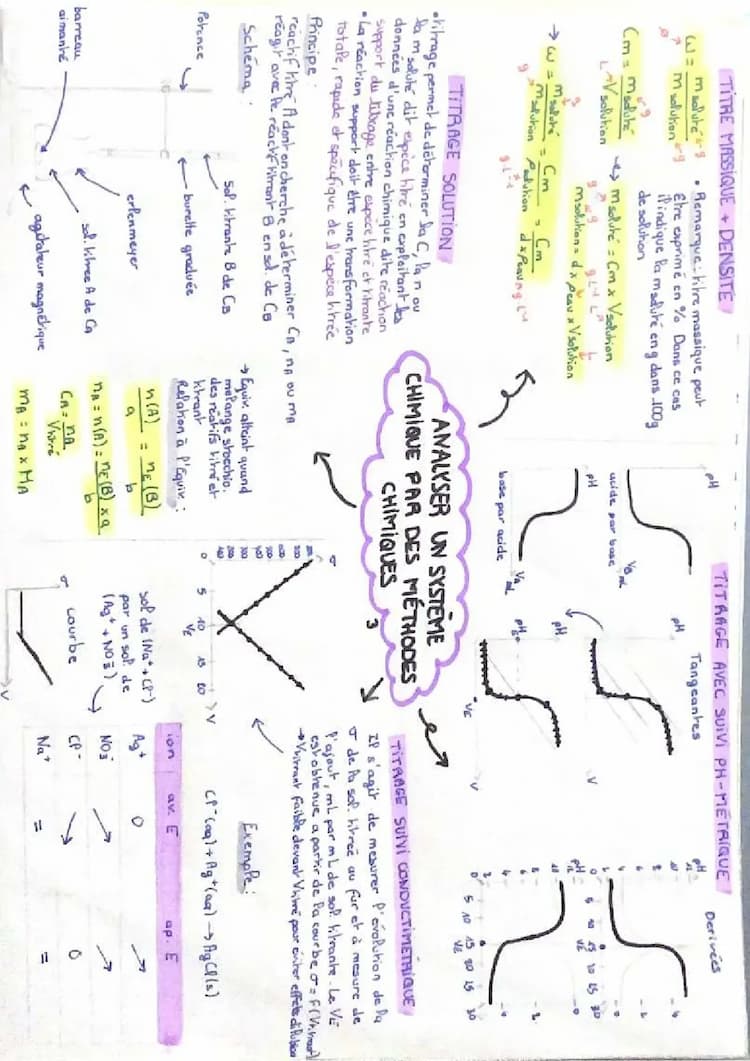 TITRE MASSIQUE + DENSITÉ
ω = m soluté / m solution
g
g
Cm = m soluté / V solution
g
L
• Remarque : titre massique peut
être exprimé en %. Dans ce cas
il indique la m soluté en g dans 100g
de solution
↳ m soluté = Cm × V solution
g g.L⁻¹ L
m solution = d × ρeau × V solution
→ ω = m soluté / m solution = Cm / ρ solution = Cm / d × ρeau
g.L⁻¹
TITRAGE SOLUTION
• titrage permet de déterminer la C, la n ou
la m soluté dit espèce titré en exploitant les
données d'une réaction chimique dite réaction
support du titrage entre espèce titré et titrante
• La réaction support doit être une transformation
totale, rapide et spécifique de l'espèce titrée
Principe :
réactif titré A dont on cherche à déterminer CA, nA ou mA
réagit avec le réactif titrant B en sol. de CB
Schéma :
Potence
sol. titrante B de CB
burette graduée
erlenmeyer
sol. titrée A de CA
barreau
aimanté
agitateur magnétique
→ Equiv. atteint quand
mélange stoechio.
des réactifs titré et
titrant
Relation à l'équiv :
n(A) / a = nE(B) / b
nA = n(A) = nE(B) × a / b
CA = nA / Vtitré
mA = nA × MA
ANALYSER UN SYSTÈME
CHIMIQUE PAR DES MÉTHODES
CHIMIQUES
3
TITRAGE AVEC SUIVI PH-MÉTRIQUE
pH
acide par base
VB mL
pH
base par acide
VA mL
Tangeantes
pH
V
pH
pHE
VE
V
Dérivées
pH
5 10 15 20 25 30
VE
pH
5 10 15 20 25 30
VE
TITRAGE SUIVI CONDUCTIMÉTRIQUE
Il s'agit de mesurer l'évolution de la
σ de la sol. titrée au fur et à mesure de
l'ajout, mL par mL de sol. titrante. Le VE
est obtenue a partir de la courbe σ = f(Vtitrant)
→ Vtitrant faible devant Vtitré pour éviter effets dilution
Exemple :
Cl⁻(aq) + Ag⁺(aq) → AgCl(s)
σ
0 5 10 15 20
VE
V
sol de (Na⁺ + Cl⁻)
par un sol. de
(Ag⁺ + NO₃⁻)
σ courbe
V
ion av. E ap. E
Ag⁺ 0 ↗
NO₃⁻ ↗ ↗
Cl⁻ ↘ 0
Na⁺ = =